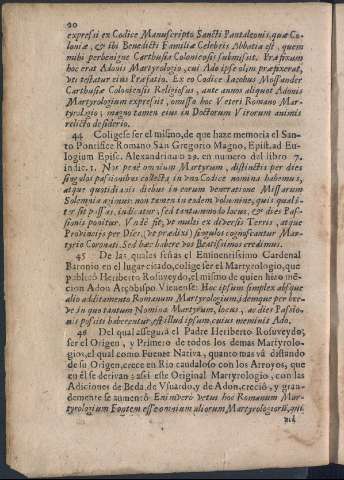 20
expressi ex Codice Manuscripto Sancti Pantaleonis, quæ Co-
loniæ, & ibi Benedicti Familiæ Celebris Abbatia est, quem
mihi perbenigne Carthusia Coloniensis submisit. Præfixum
hoc erat Adonis Martyrologio, cui Ado ipse olim præfixerat,
vti testatur eius Præfatio. Ex eo Codice Iacobus Mossander
Carthusiæ Coloniensis Religiosus, ante annos aliquot Adonis
Martyrologium expressit, omisso hoc Veteri Romano Mar-
tyrologio; magno tamen eius in Doctorum Virorum animis
relicto desiderio.
44 Coligese ser el mismo, de que haze memoria el San-
to Pontifice Romano San Gregorio Magno, Epist. ad Eu-
logium Episc. Alexandrinū 29. en numero del libro 7.
indic. 1. Nos penè omnium Martyrum, distinctis per dies
singulos passionibus collecta in vno Codice nomina habemus,
atque quotidianis diebus in eorum veneratione Missarum
Solemnia agimus: non tamen in eodem volumine, quis quali-
ter sit passus, indicatur, sed tantummodo locus, & dies Pas-
sionis ponitur. Vnde fit, vt multi ex diversis Terris, atque
Provincijs per Dies, (vt prædixi) singulos cognoscantur Mar-
tyrio Coronati. Sed hæc habere vos Beatissimos credimus.
45 De las quales señas el Eminentissimo Cardenal
Baronio en el lugar citado, colige ser el Martyrologio, que
publicò Heriberto Rosuveydo, el mismo de quien hizo mē-
cion Adon Arçobispo Vienense: Hoc ipsum simplex absque
alio additamento Romanum Martyrologium; idemque per bre-
ve in quo tantum Nomina Martyrum, locus, ac dies Passio-
nis positi haberentur, est illud ipsum, cuius meminit Ado.
46 Del qual assegura el Padre Heriberto Rosuveydo,
ser el Origen, y Primero de todos los demas Martyrolo-
gios, el qual como Fuente Nativa, quanto mas và distando
de su Origen, crece en Rio caudaloso con los Arroyos, que
en èl se derivan: assi este Original Martyrologio, con las
Adiciones de Beda, de Vsuardo, y de Adon, creciò, y gran-
demente se aumentò Enimvero vetus hoc Romanum Mar-
tyrologium Fontem esse omnium aliorum Martyrologiorū, qui